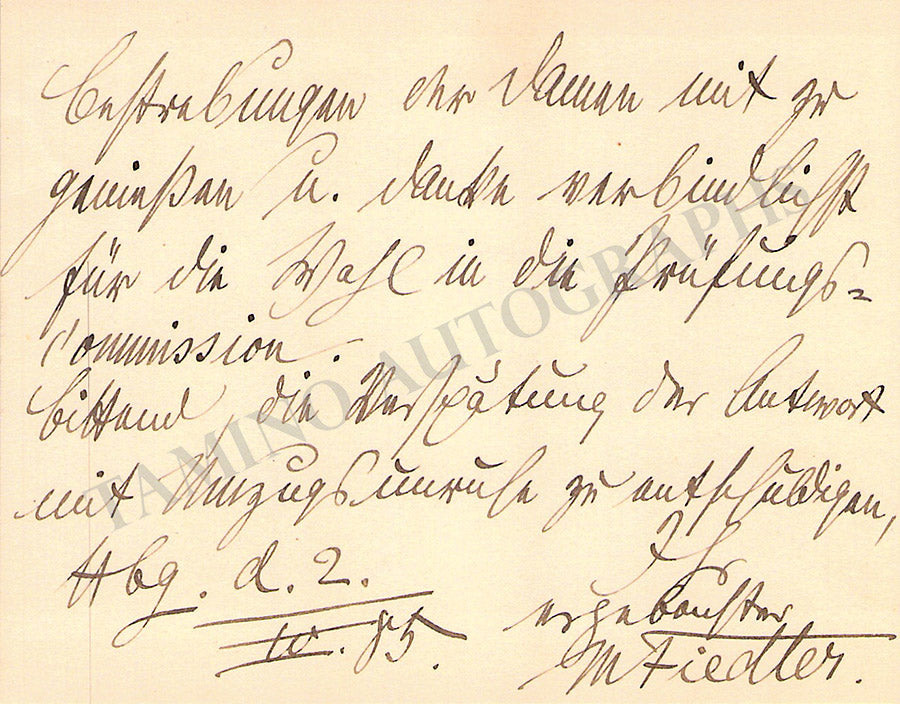 Bestrebungen der Damen mit zu
genießen u. danke verbindlichst
für die Wahl in die Prüfungs=
commission.
Bittend, die Verspätung der Antwort
mit Umzugsunruhe zu entschuldigen,
Ihr
Hbg. d. 2.
ergebenster
10. 85.
M Fiedler.
TAMINO AUTOGRAPHS